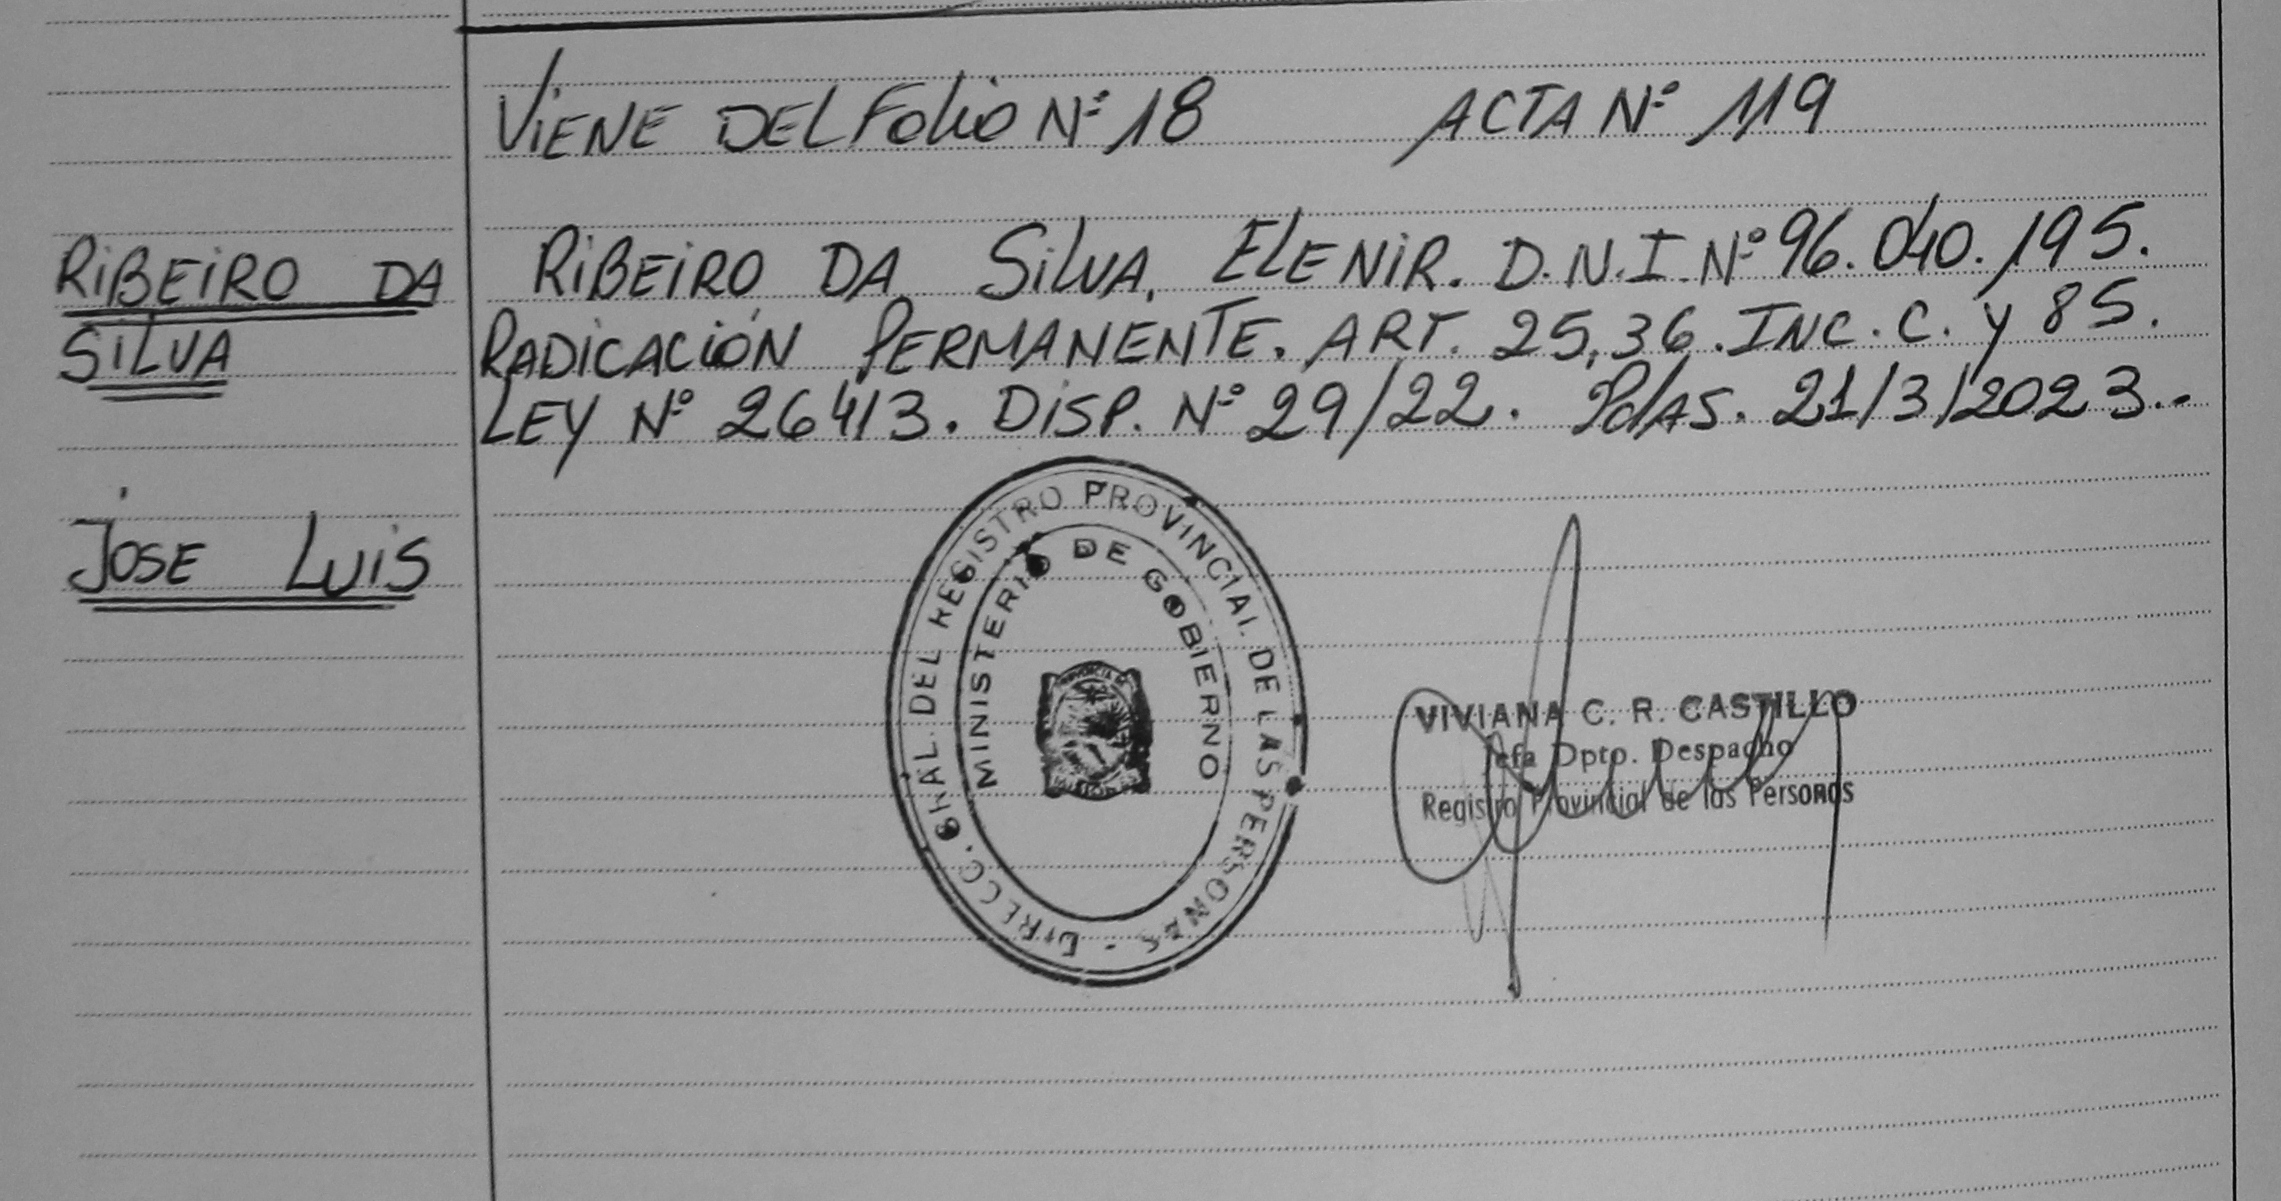 VIENE DEL FOLIO Nº 18 ACTA Nº 119
RIBEIRO DA
SILVA
JOSE LUIS
RIBEIRO DA SILVA, ELENIR. D.N.I. Nº 96.040.195.
RADICACIÓN PERMANENTE. ART. 25,36. INC. C. y 85.
LEY Nº 26413. DISP. Nº 29/22. PdAS. 21/3/2023.-
DIRECC. GRAL. DEL REGISTRO PROVINCIAL DE LAS PERSONAS -
MINISTERIO DE GOBIERNO
VIVIANA C. R. CASTILLO
Jefa Dpto. Despacho
Registro Provincial de las Personas